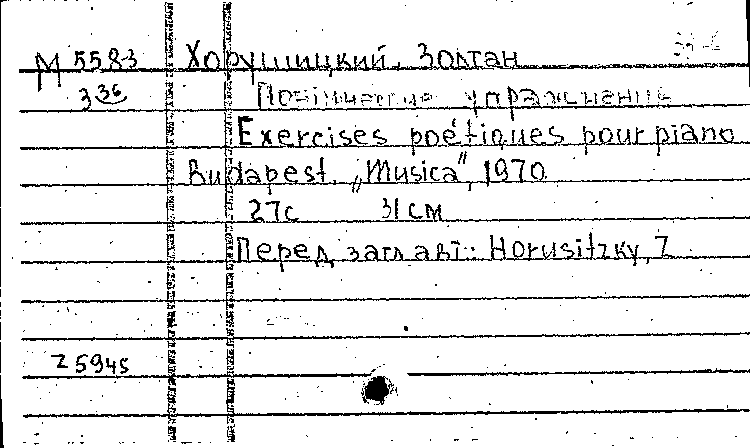 М 5583 Хорушицкий, Золтан
З 36 упражнения
Exercises poétiques pour piano
Budapest. „Musica", 1970
27с 31 см
Перед загл авт: Horusitzky, Z
Z 5945